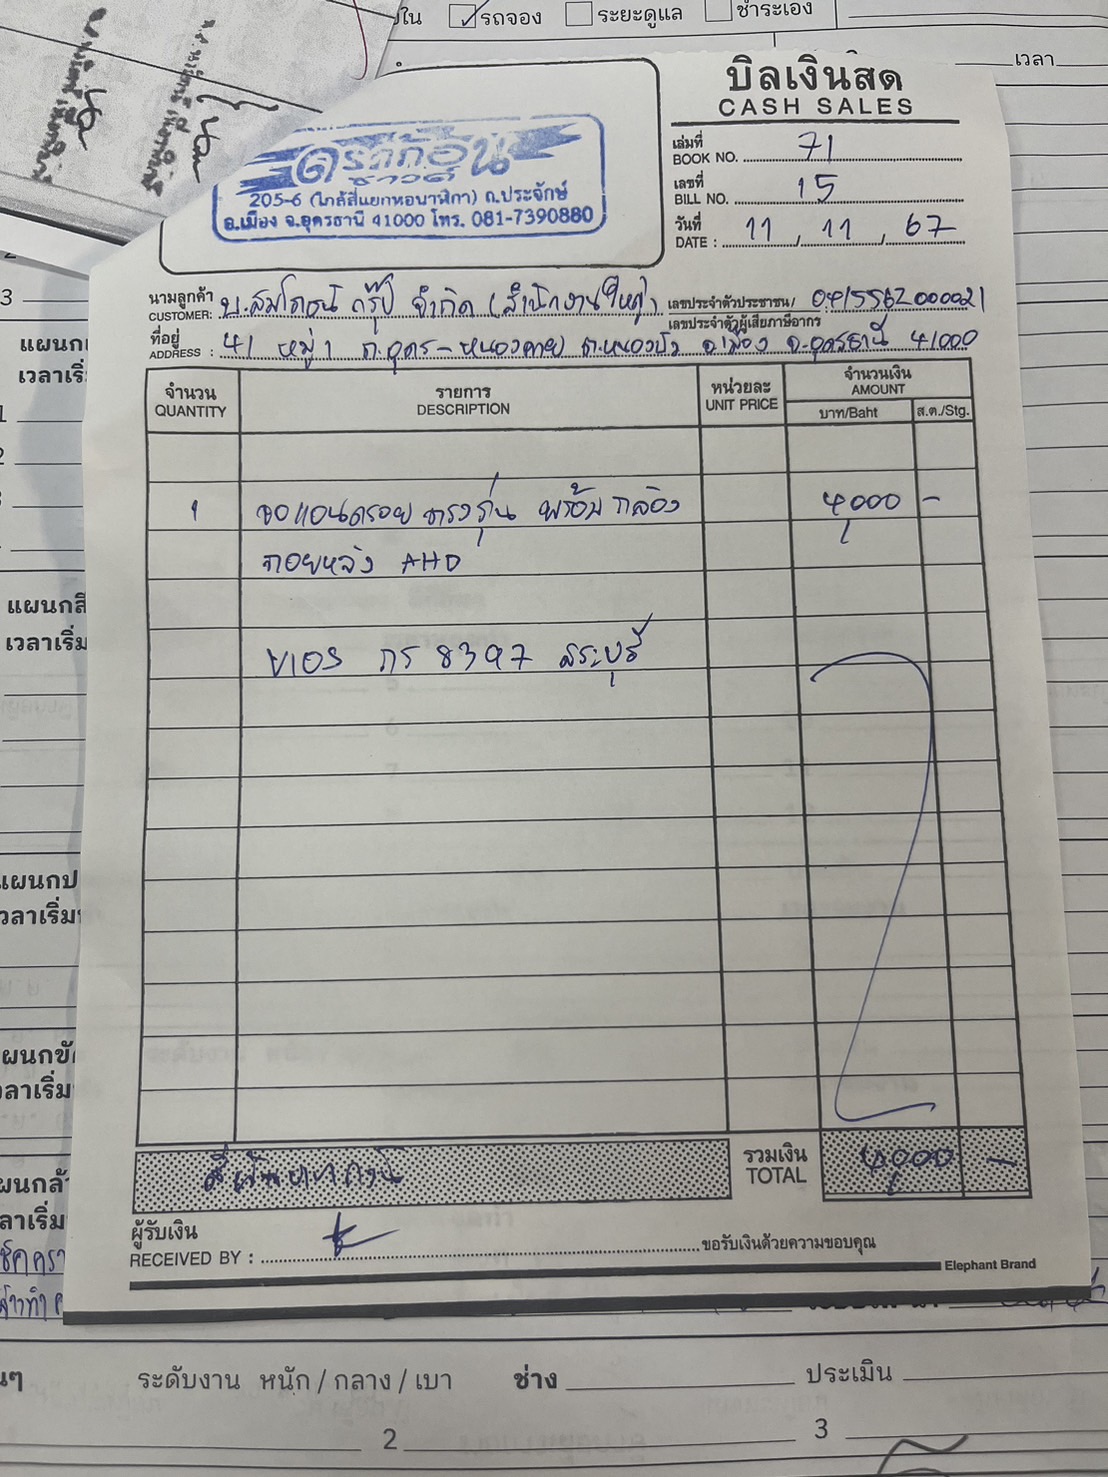 รถจอง ระยะดูแล ชำระเอง
เวลา
บิลเงินสด
CASH SALES
ดราก้อน
ซาวด์
205-6 (ใกล้สี่แยกหอนาฬิกา) ถ.ประจักษ์
อ.เมือง จ.อุดรธานี 41000 โทร. 081-7390880
เล่มที่
BOOK NO. 71
เลขที่
BILL NO. 15
วันที่
DATE : 11 / 11 / 67
นามลูกค้า
CUSTOMER: บ.สมโภชน์ กรุ๊ป จำกัด (สำนักงานใหญ่)
เลขประจำตัวประชาชน/ 0415562000021
เลขประจำตัวผู้เสียภาษีอากร
ที่อยู่
ADDRESS : 41 หมู่ 1 ถ.อุดร-หนองคาย ต.หนองบัว อ.เมือง จ.อุดรธานี 41000
จำนวน รายการ หน่วยละ จำนวนเงิน
QUANTITY DESCRIPTION UNIT PRICE AMOUNT
บาท/Baht ส.ต./Stg.
1 จอแอนดรอย ตรงรุ่น พร้อม กล้อง 4,000 -
ถอยหลัง AHD
VIOS กร 8397 สระบุรี
สี่พันบาทถ้วน
รวมเงิน
TOTAL 4,000 -
ผู้รับเงิน
RECEIVED BY : ขอรับเงินด้วยความขอบคุณ
Elephant Brand
ระดับงาน หนัก / กลาง / เบา ช่าง ประเมิน
2 3